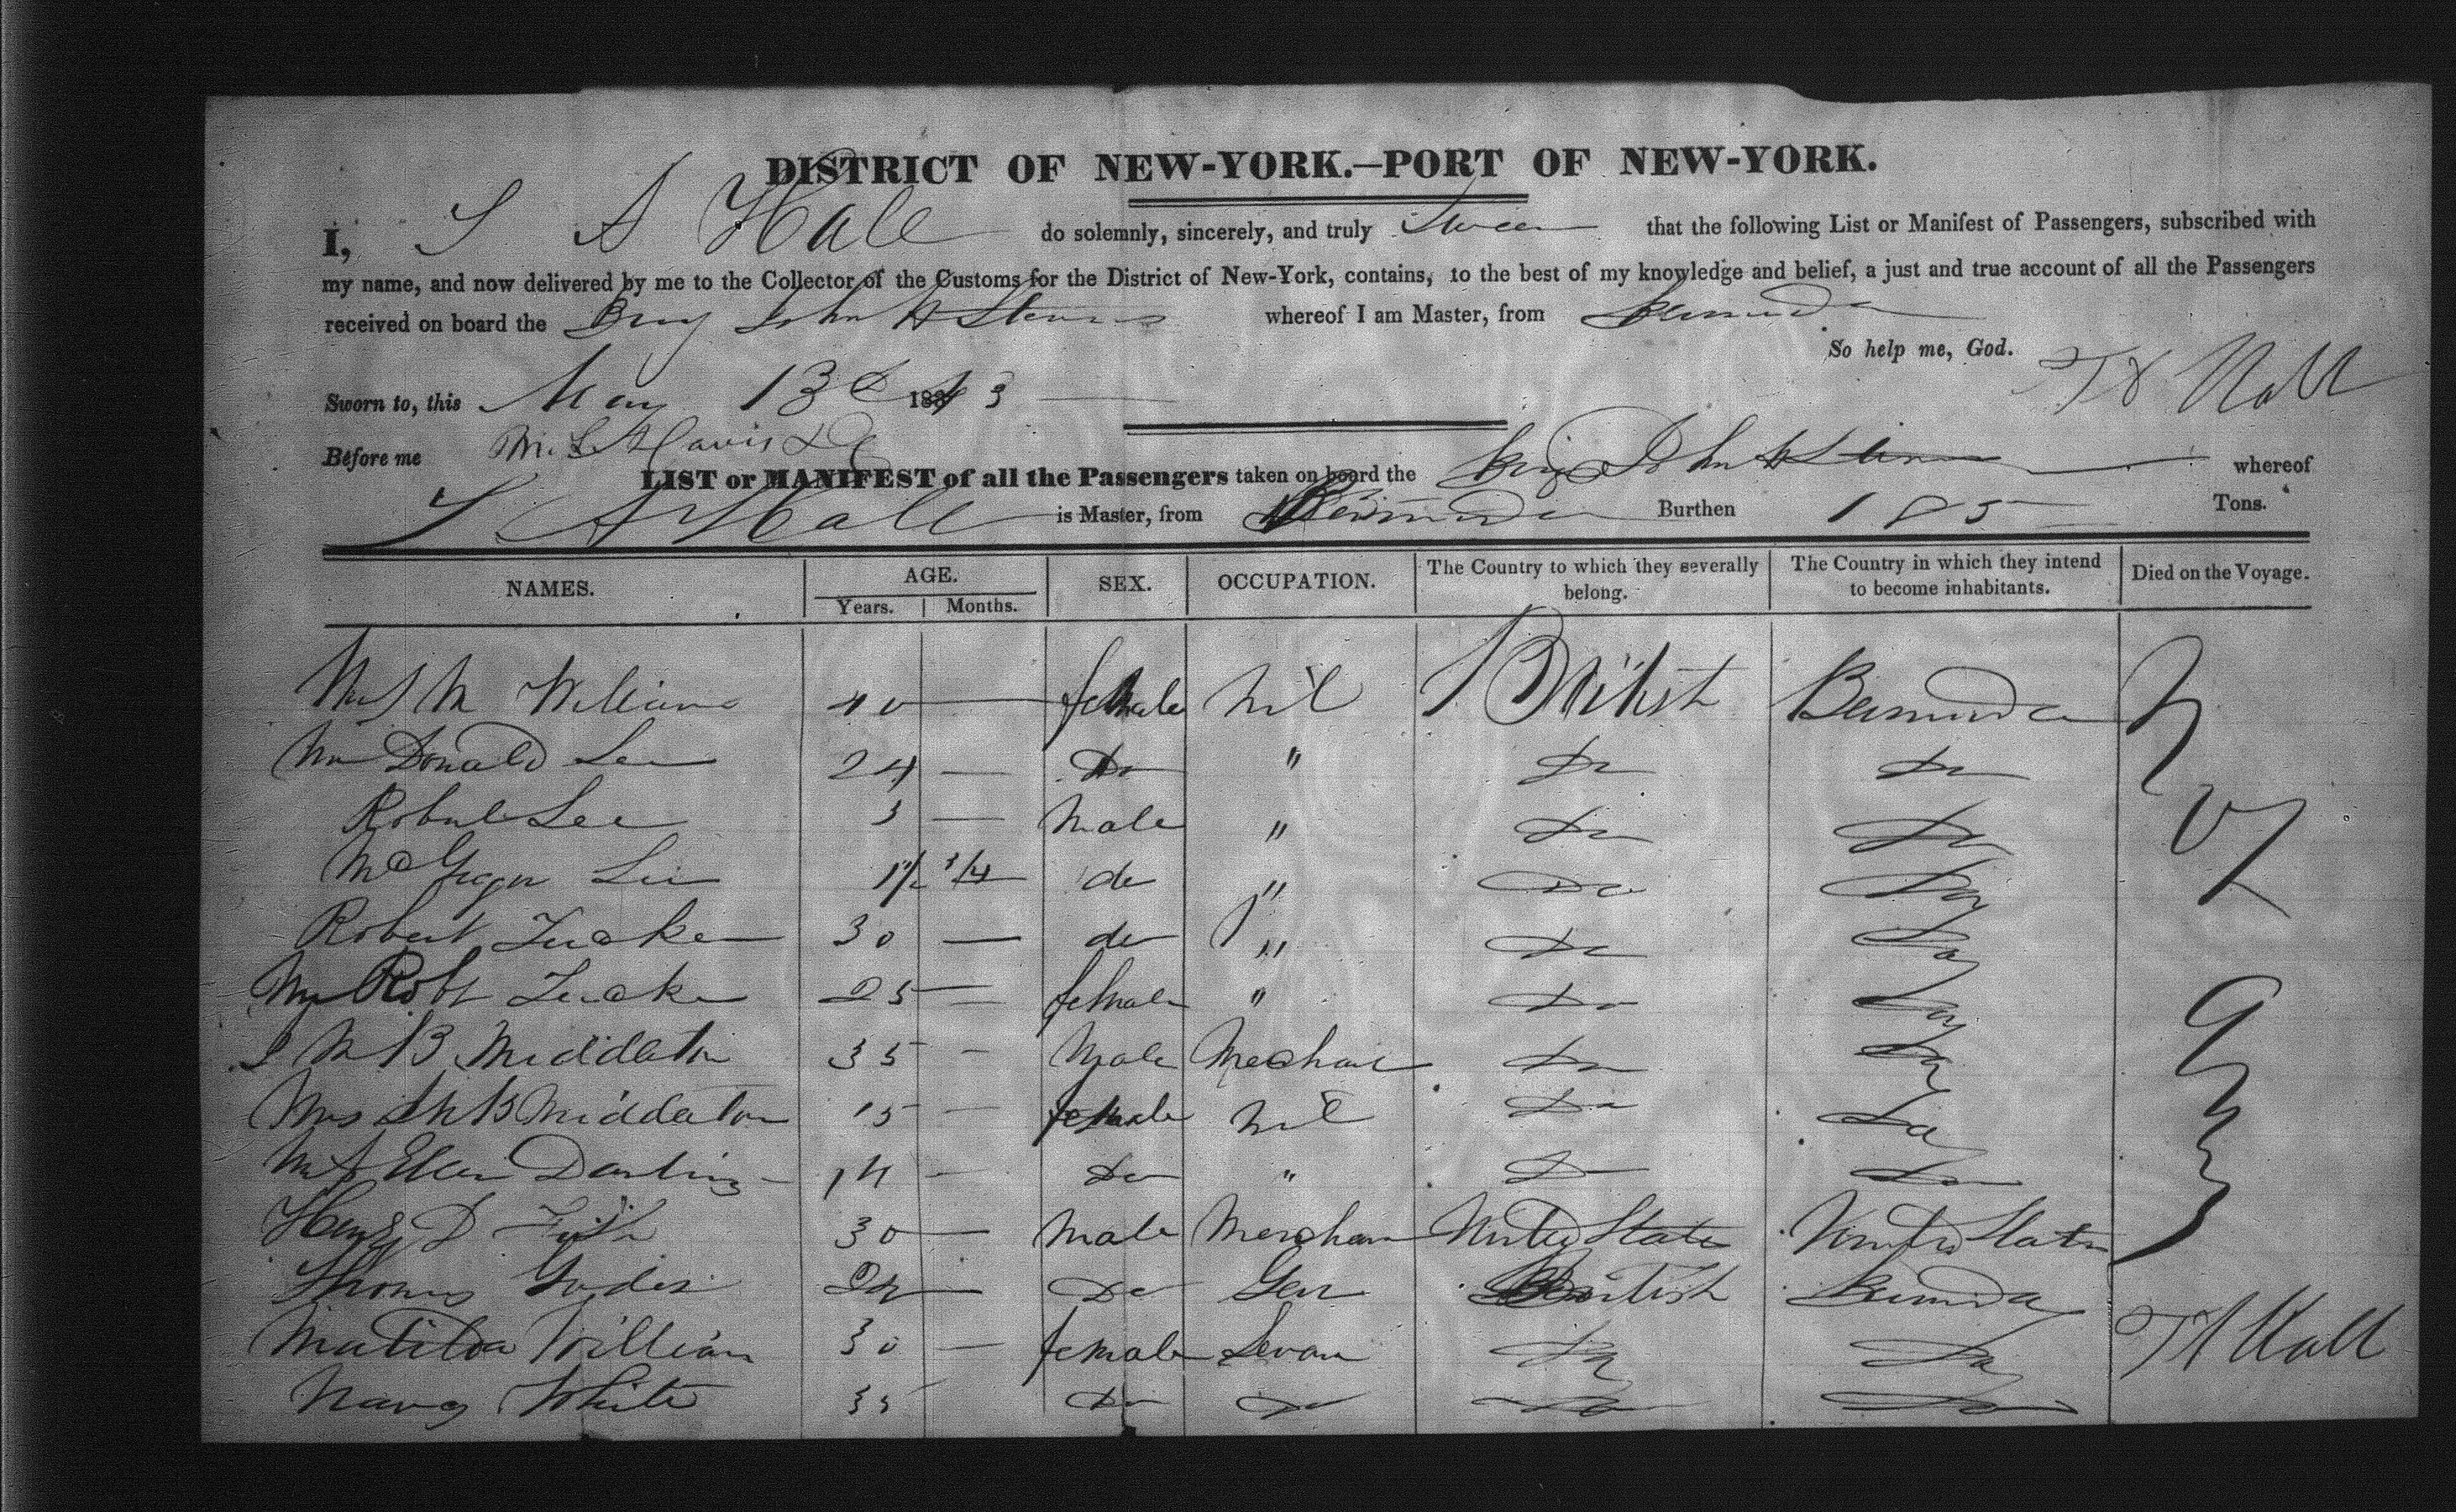 DISTRICT OF NEW-YORK.—PORT OF NEW-YORK.
I, S A Hall do solemnly, sincerely, and truly Swear that the following List or Manifest of Passengers, subscribed with
my name, and now delivered by me to the Collector of the Customs for the District of New-York, contains, to the best of my knowledge and belief, a just and true account of all the Passengers
received on board the Brig John H Stevens whereof I am Master, from Bermuda
So help me, God.
Sworn to, this May 13 1843 Hall
Before me
LIST or MANIFEST of all the Passengers taken on board the Brig John H whereof
S A Hall is Master, from Bermuda Burthen 185 Tons.
NAMES. AGE. SEX. OCCUPATION. The Country to which they severally belong. The Country in which they intend to become inhabitants. Died on the Voyage.
Years. Months.
M William 40 — female nil British Bermuda
Donald Lee 24 — Do " Do Do
Robert Lee 3 — Male " Do Do
McGregor Lee 1 1/2 3/4 do " Do Do
Robert Tucker 30 — do " Do Do
Mrs Robt Tucker 25 — female " Do Do
J M B Middleton 35 - Male Mechanic Do Do
Mrs J M B Middleton 25 - female nil Do Do
Ellen Darling 14 - Do " Do Do
Henry D Fish 30 — Male Merchan United States United States
Thomas — Do Gen British Bermuda
Matilda William 30 — female Servan Do Do
Nancy White 35 Do Do Do Do
Hall